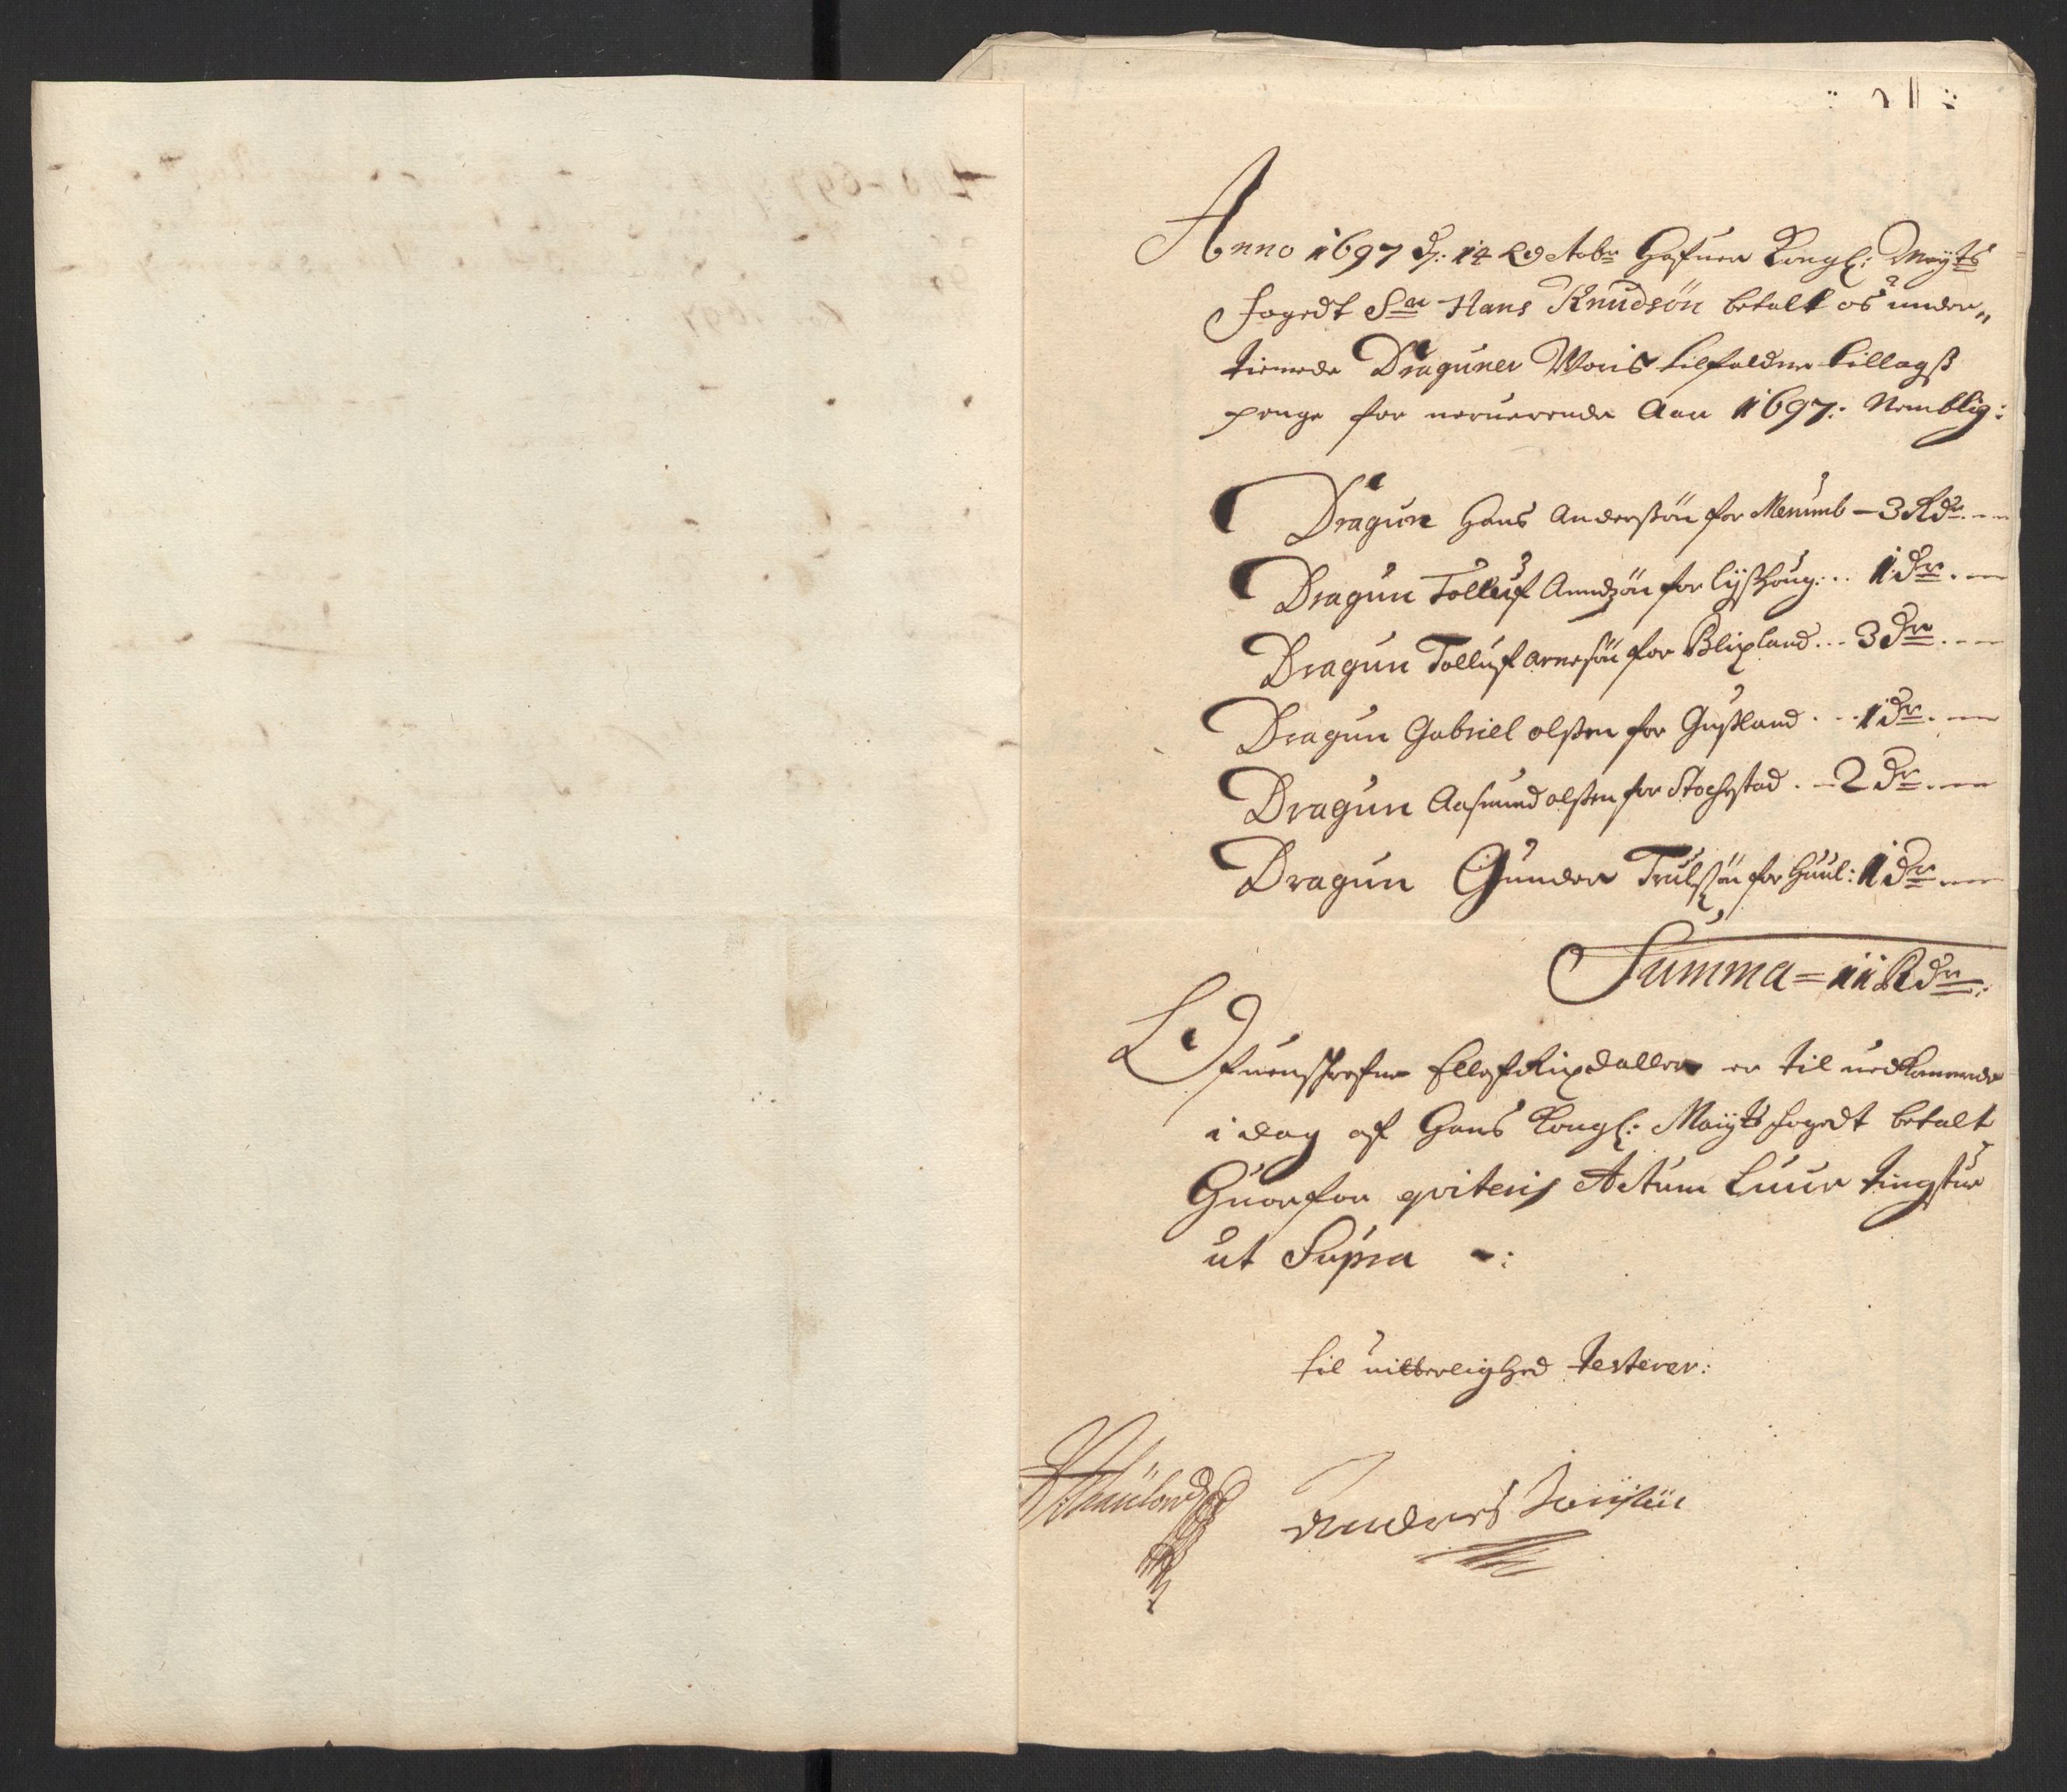 Anno 1697 d: 14 Octobr Hafuer Kongl: Mayts
fogedt Sr Hans Knudsön betalt os under„
tienede Draguner Voris tilfaldne tillagsß
penge for neruerende Aar 1697: Nemblig:
Dragun Hans Anderßön for - 3 Rdr
Dragun Tolluf Amndzön for Lijßhoug... 1 dr
Dragun Tolluf arneßön for Blixland... 3 dr
Dragun Gabriel olßen for Gußland... 1 dr
Dragun Aasmund olßen for Stochstad. - 2 dr
Dragun Gunder Trulßön for Huul: 1 dr
Summa = 11 Rdr:
Ofuenschrefne Ellefue Rixdaller er til uedkommende
i dag af Hans Kongl: Mayts fogedt betalt
Huorfor qviteris Actum Luur tingstue
ut Supra -:
til vitterlighed testerer:
Anders